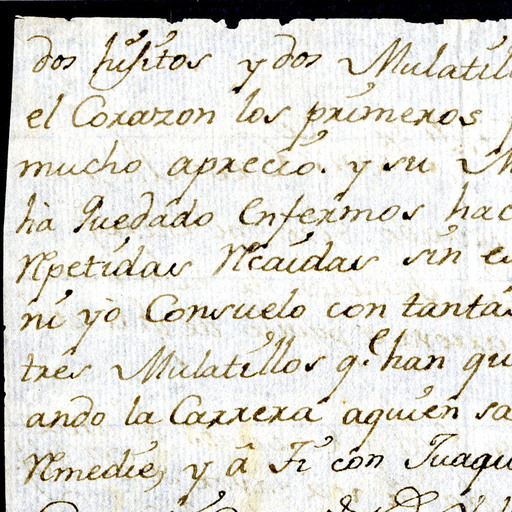 dos hijitos y dos Mulatill
el Corazon los primeros
mucho aprecio. y su M
hà Quedado Enfermos hac
Repetidas Recaidas sin es
ni yò Consuelo con tantas
tres Mulatillos q.e han qu
ando la Carrera aquien sa
Remedie, y â Fi con Juaqu